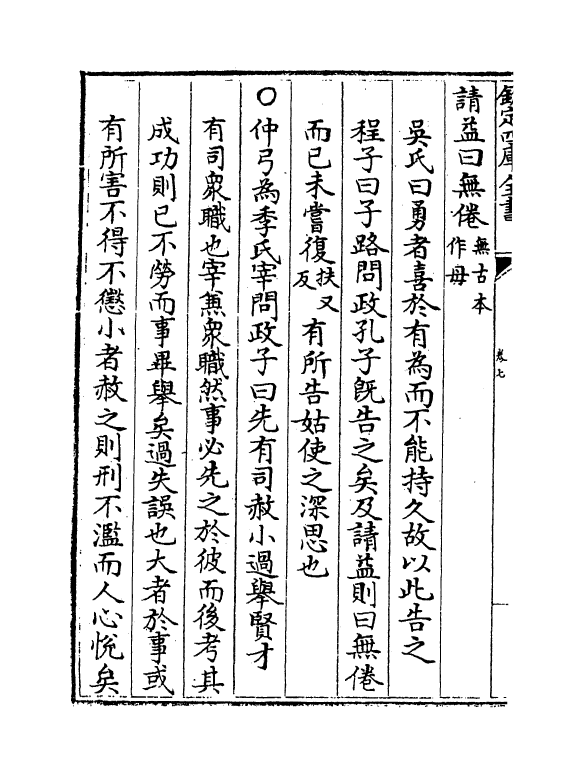 欽定四庫全書
卷七
請益曰無倦無古本作毋
吳氏曰勇者喜於有為而不能持久故以此告之
程子曰子路問政孔子既告之矣及請益則曰無倦
而已未嘗復扶又反有所告姑使之深思也
○仲弓為季氏宰問政子曰先有司赦小過舉賢才
有司衆職也宰兼衆職然事必先之於彼而後考其
成功則已不勞而事畢舉矣過失誤也大者於事或
有所害不得不懲小者赦之則刑不濫而人心悅矣